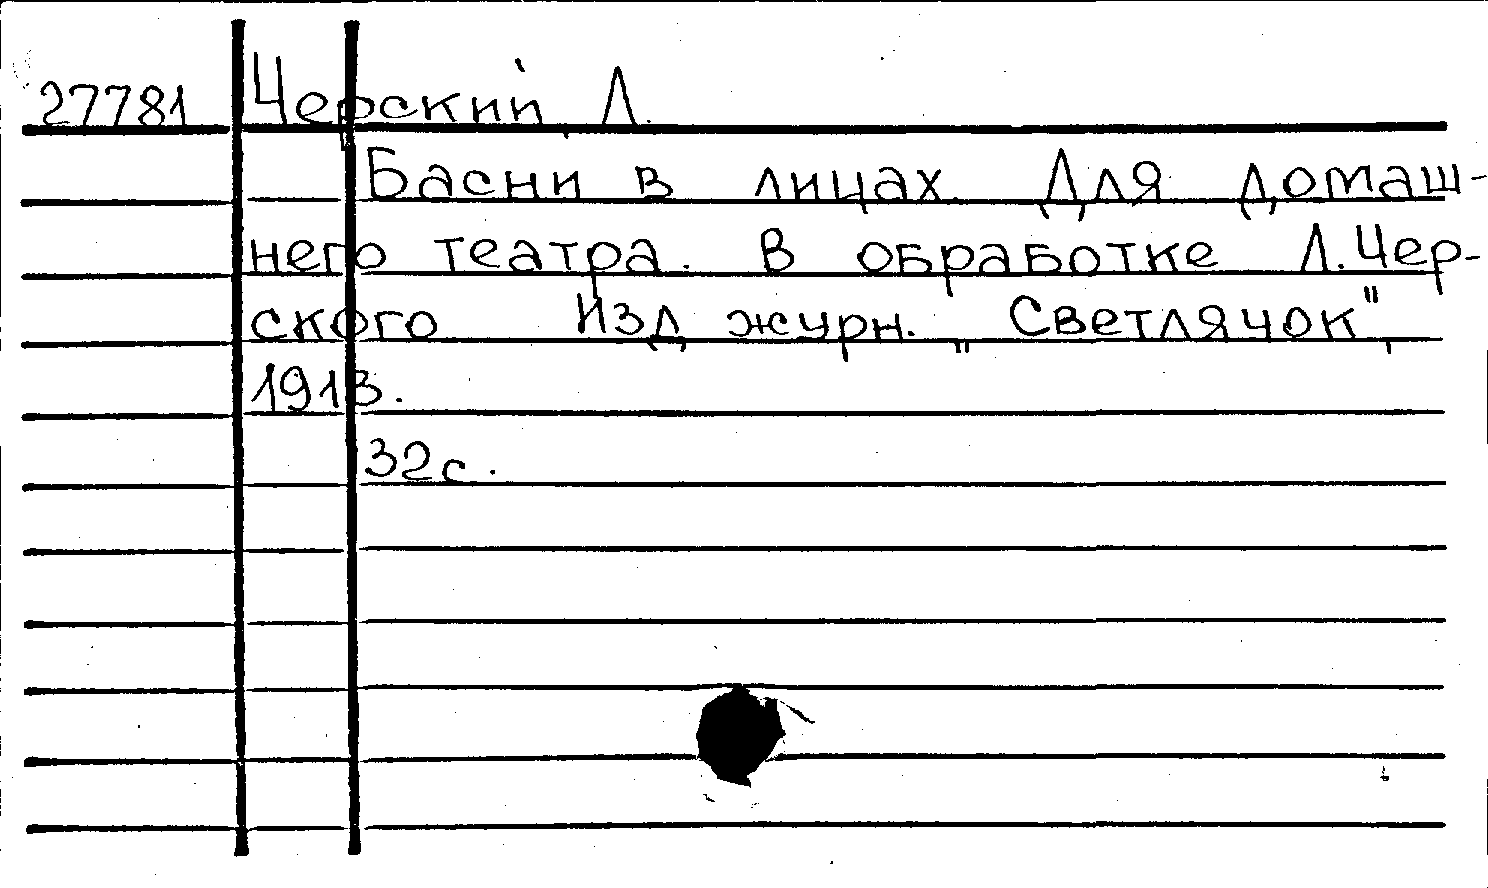 27781 Черский Л.
Басни в лицах Для домаш-
него театра. В обработке Л.Чер-
ского Изд журн. „Светлячок",
1913.
32с.